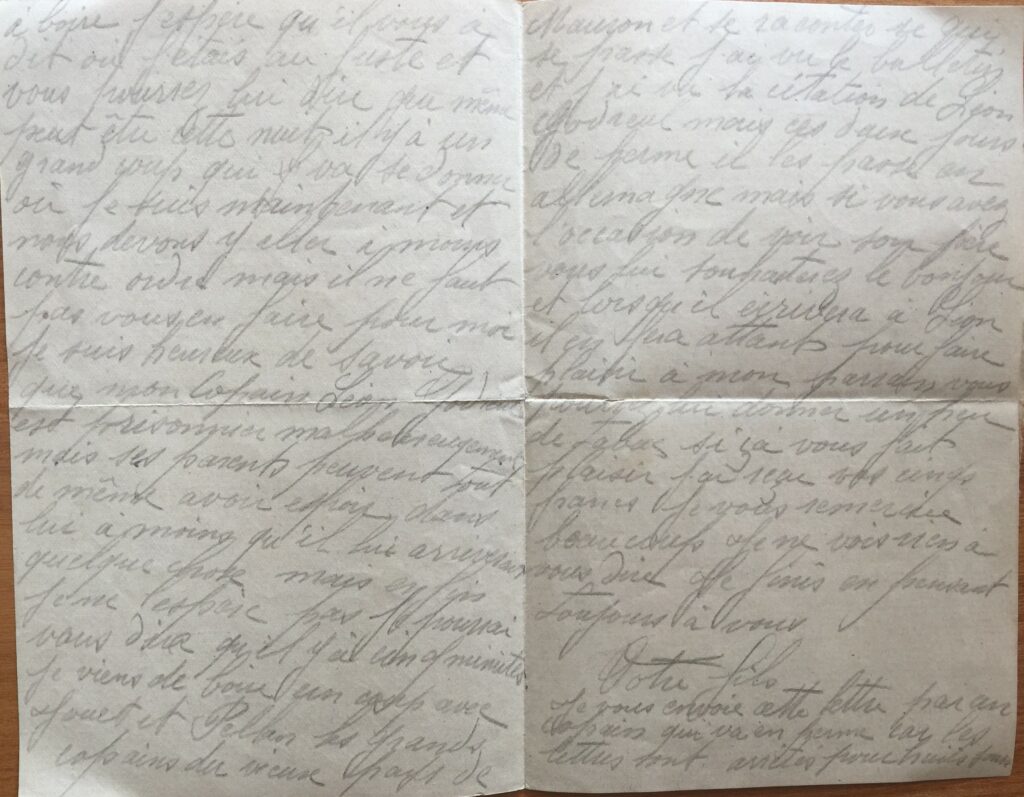 à boire j espère qu'il vous à
dit où j'étais au juste et
vous pourrer lui dire que même
peut être cette nuit il y à un
grand coup qui va se donner
où je suis maintenant et
nous devons y aller à moins
contre ordre mais il ne faut
pas vous en faire pour moi
je suis heureux de savoir
que mon Copain Léon
est prisonnier malheureusement
mais ses parents peuvent tout
de même avoir espoir dans
lui à moins qu'il lui arriverait
quelque chose mais en fin
je ne l'espère pas je pourrai
vous dire qu'il y à cinq minutes
je viens de boire un coup avec
Jouet et Pellan les grands
copains du vieux pays de
Mauzon et se raconter se qui
se passe j'ay vu le bulletin
et j'ai vu la citation de Léon
mais ces deux jours
de perme il les passe en
allemagne mais si vous avez
l'occasion de voir son père
vous lui souhaiterez le bonjour
et lorsqu'il écrivera à Léon
il en fera attant pour faire
plaisir à mon parrain vous
pourez lui donner un peu
de tabac si ça vous fait
plaisir j'ai reçu vos cinqs
francs je vous remercie
beaucoup je ne vois rien à
vous dire je finis en pensant
toujours à vous
Votre fils
Je vous envoie cette lettre par un
Copain qui va en perme car les
lettres sont arrêtés pour huits jours